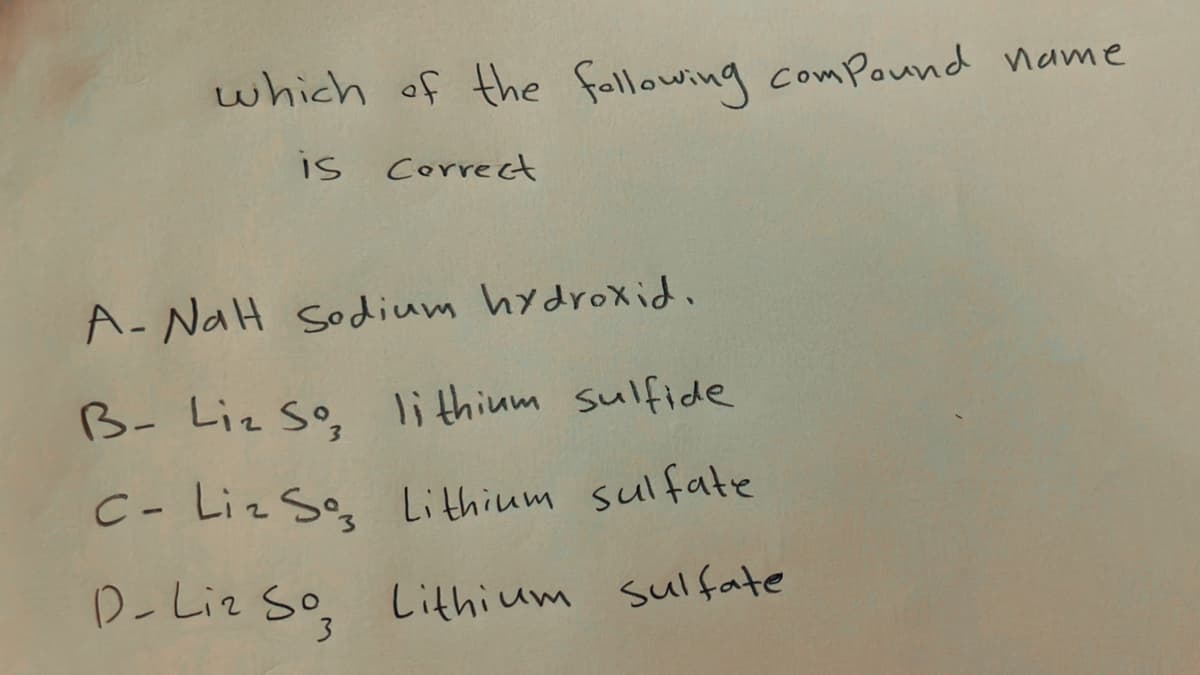 which of the following compound name
is correct
A- NaH sodium hydroxid.
B- Li₂ SO₃ lithium sulfide
C- Li₂ SO₃ Lithium sulfate
D- Li₂ SO₃ Lithium sulfate